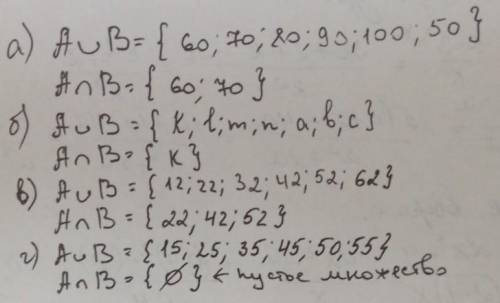 а) A∪B={60;70;80;90;100;50}
A∩B={60;70}
б) A∪B={K;l;m;n;a;b;c}
A∩B={K}
в) A∪B={12;22;32;42;52;62}
A∩B={22;42;52}
г) A∪B={15;25;35;45;50;55}
A∩B={∅} ← пустое множество